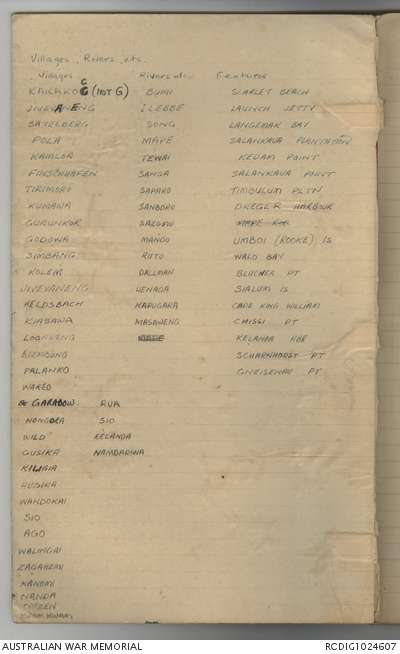 Villages, Rivers, etc.
Villages Rivers etc. Features
KAIRAKO G (NOT G) BUMI SCARLET BEACH
JIVEVANENG ILEBBE LAUNCH JETTY
SATELBERG SONG LANGEMAK BAY
POLA MAPE SALANKAUA PLANTATION
KAMLOA TEWAI KEDAM POINT
FINSCHHAFEN SANGA SALANKAUA POINT
TIRIMORO SAPAKO TIMBULUM PLTN
KUMAWA SANBORO DREGER HARBOUR
GURUNKOR SAZOEW
GODOWA MANDO UMBOI (ROOKE) IS
SIMBANG ROTO WALD BAY
KOLEM DALLMAN BLUCHER PT
JIVEVANENG UENAGA SIALUM IS
HELDSBACH HARUGARA CAPE KING WILLIAM
KIABAWA MASAWENG CHISSI PT
KELANOA HBR
SCHARNHORST PT
PALANKO GNEISENAU PT
WAREO
GARABOW RUA
NONGORA SIO
WILD KELANOA
GUSIKA NAMBARIWA
KILIGIA
WANDOKAI
SIO
AGO
WALINGAI
ZAGAHEMI
KANOMI
NANDA
AUSTRALIAN WAR MEMORIAL RCDIG1024607